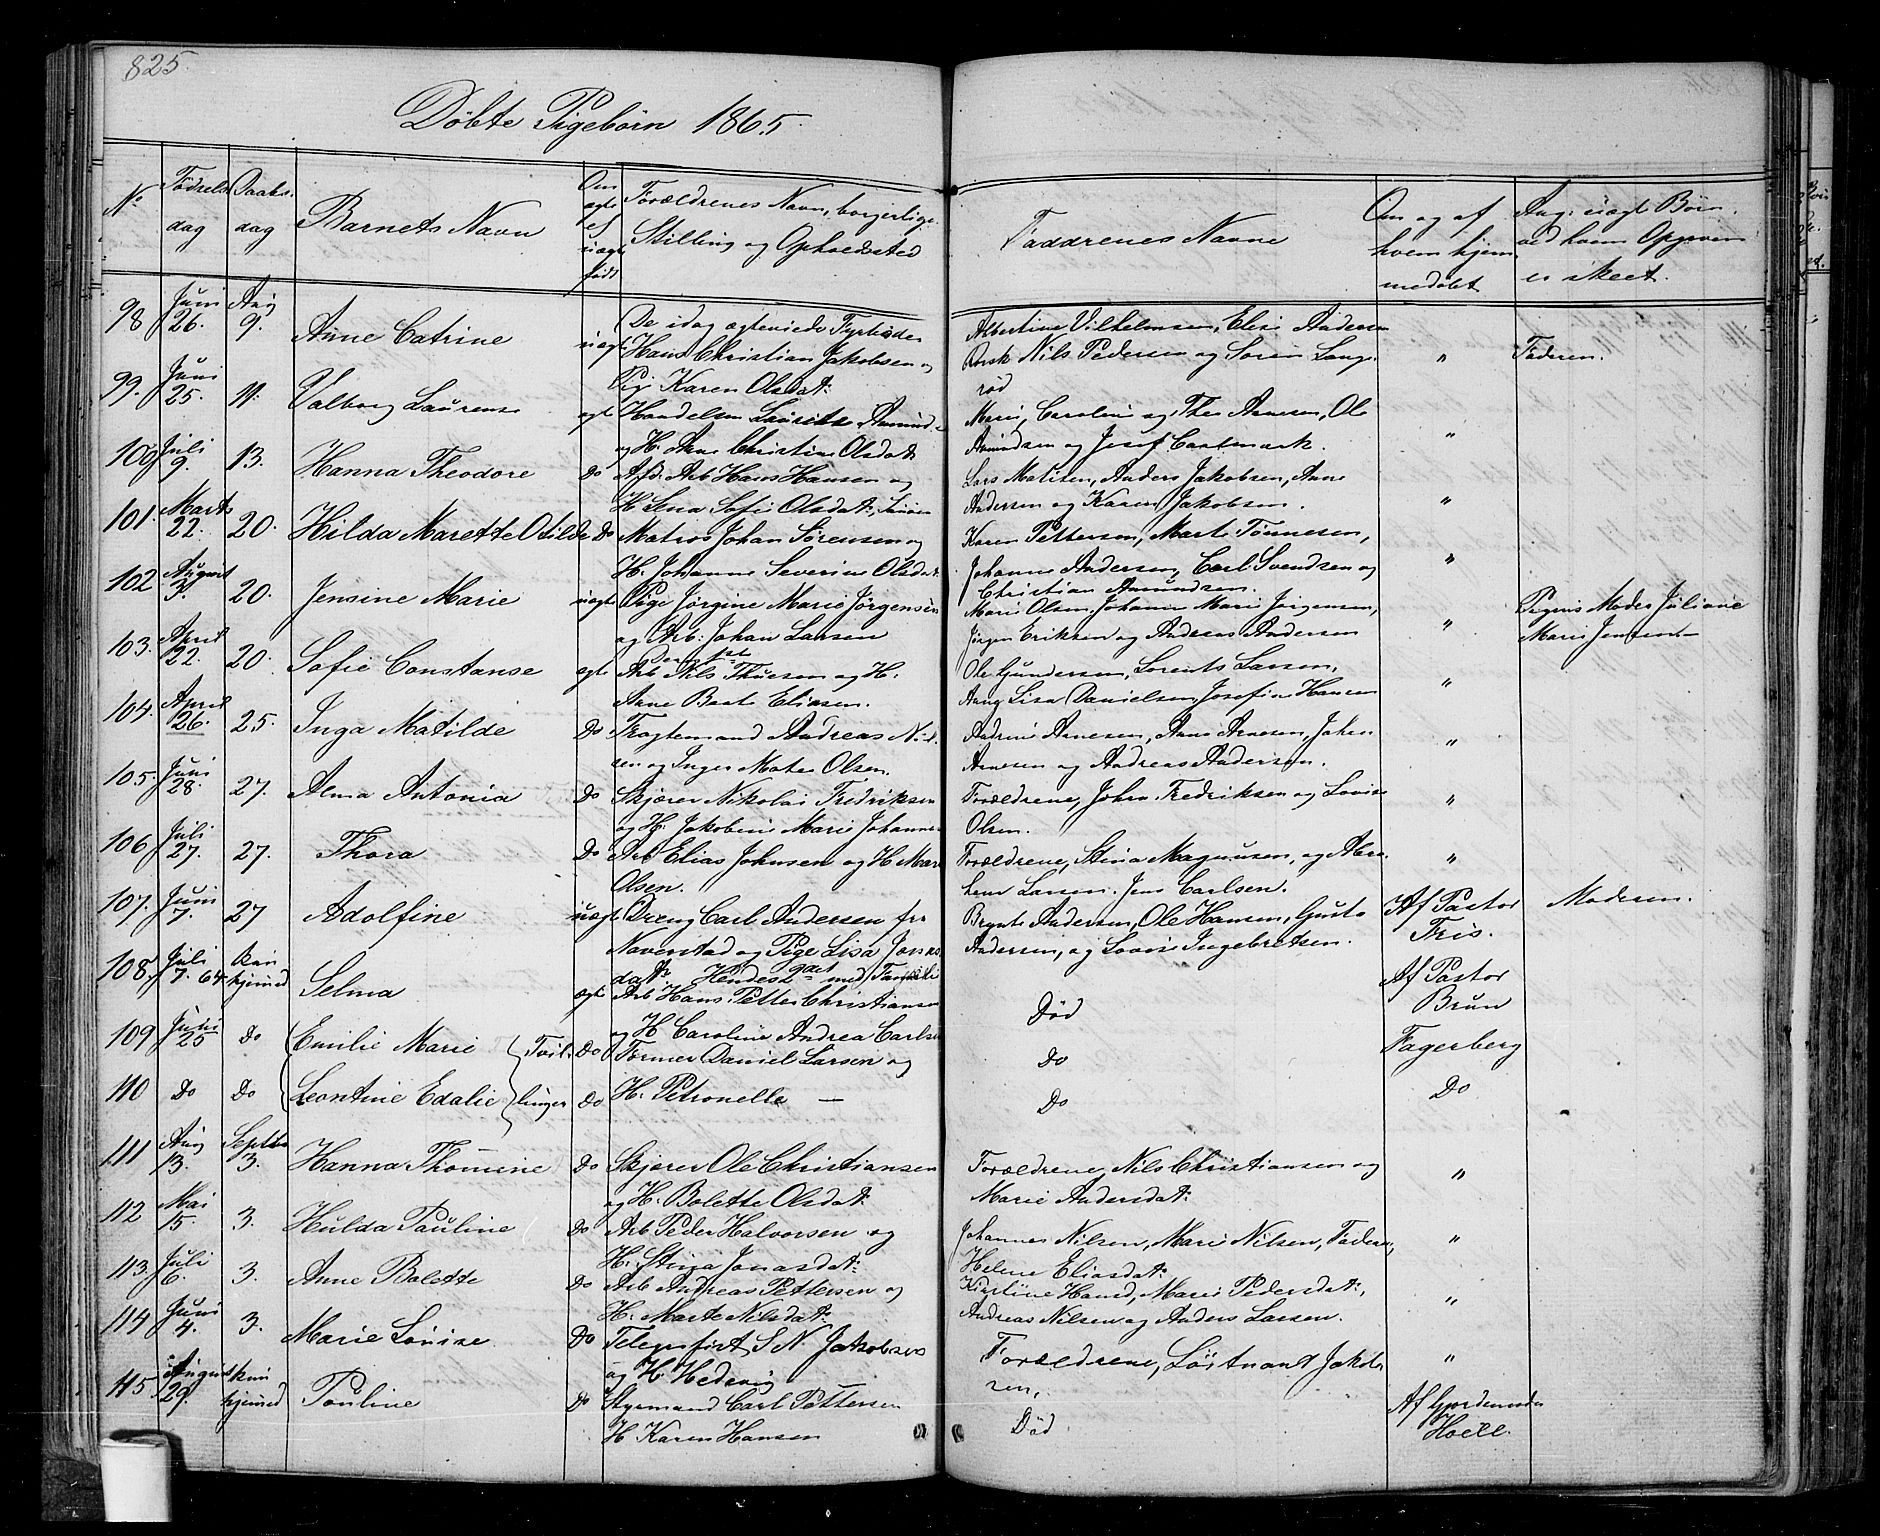 825.
Döbte Pigebörn 1865.
No
Födsels dag
Daabs dag
Barnets Navn
Om ægte el uægte födt
Forældrenes Navn, borgerlige Stilling og Opholdssted
Faddrenes Navne
Om og af hvem hjem medöbt
Ang: uægte Börn ved hvem Opgiven er skeet.
98 Juni 26. Aug 9. Anne Catrine uægte De idag ægteviede Fyrböder Hans Christian Jakobsen og Pig. Karen Olsdat: Albertine Vilhelmsen, Elise Andersen Nils Pedersen og Sören Langröd " Faderen.
99. Juni 25. 11. Valborg Laurense ægte Handelsm Laurits Amund- og H. Christine Olsdat: Marie, Caroline og Thea Arnesen, Ole Amundsen og Josef Cartmark. "
100 Juli 9. 13. Hanna Theodore Do Afd. Arb Hans Hansen og H Lina Sofie Olsdat: Lars Matisen, Anders Jakobsen, Anne Andersen og Karen Jakobsen. "
101. Marts 22. 20. Hilda Marette Otilde Do Matros Johan Sörensen og H. Johanne Severine Olsdat: Karen Pettersen, Marte Tönnesen, Johanne Andersen, Carl Svendsen og Christian Amundsen. "
102 August 3. 20. Jensine Marie uægte Pige Jörgine Marie Jörgensen og Arb: Johan Larsen Marie Olsen, Johanne Marie Jörgensen, Jörgen Eriksen og Andreas Andersen " Pigens Moder Juliane Marie Jensen
103. April 22. 20. Sofie Constanse ægte Arb Nils Thuesen og H. Anne Beate Eliasen. Ole Gundersen, Lorents Larsen, Aang Lisa Danielsen, Josefine Hansen "
104. April 26. 25. Inga Matilde Do Fragtemand Andreas Nilsen og Inger Mate Olsen. Andrine Arnesen, Anne Arnesen, Johan Arnesen og Andreas Andersen. "
105. Juni 28. 27. Alma Antonia Do Skjærer Nikolai Fredriksen og H. Jakobine Marie Johanne- Forældrene, Johan Fredriksen og Lovise Olsen. "
106 Juli 27. 27. Thora Do Arb Elias Johnsen og H Mari Olsen. Forældrene, Stina Magnusen, og Abraham Larsen. Jens Carlsen. "
107. Juni 7. 27 Adolfine uægte Dreng Carl Andersen fra Naverstad og Pige Lisa Jonasdat: Hendes 2det med Familie Brynte Andersen, Ole Hansen, Gusta Andersen, og Lovise Ingebretsen. Af Pastor Fris. Moderen.
108, Juli 7. 64 kun hjemmed Selma ægte Arb Hans Petter Christiansen og H Caroline Andrea Carlsen Död Af Pastor Brun
109 Juni 25 Do Emilie Marie Tvil- Do Former Daniel Larsen og Do Fagerberg
110 Do Do Leontine Edalie linger Do H. Petronelle — Do Do
111 Aug 13. Septbr 3. Hanna Thomine Do Skjærer Ole Christiansen og H. Bolette Olsdat: Forældrene, Nils Christiansen og Marie Andersdat: "
112 Mai 15. 3. Hulda Pauline Do Arb Peder Halvorsen og H. Stina Jonasdat: Johannes Nilsen, Marie Nilsen, Faderen, Helene Eliasdat: "
113. Juli 6. 3. Anne Bolette Do Arb Andreas Pettersen og H. Marte Nilsdat: Kirstine Hansd, Marie Pedersdat:, Andreas Nilsen og Anders Larsen. "
114 Juni 4. 3. Marie Louise Do Telegrafist S. N. Jakobsen og H Hedevig Forældrene, Löitnant Jakobsen, "
115. August 29. kun hjemmed Pauline Do Styrmand Carl Pettersen H Karen Hansen Död Af Gjordemoder Hoell.